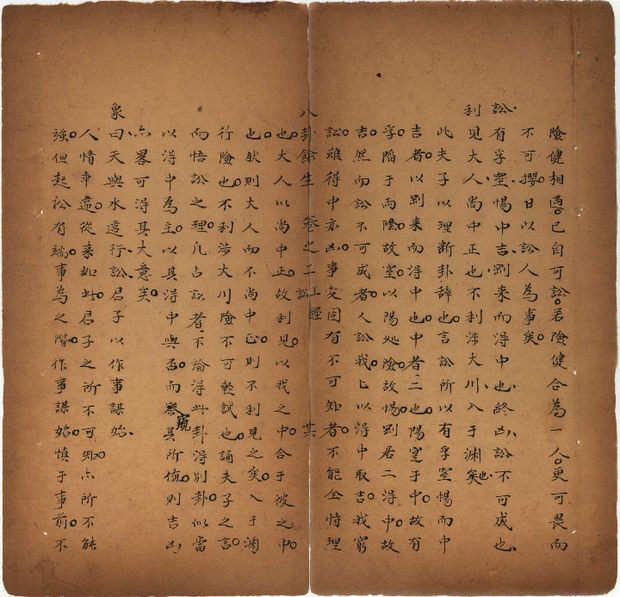 險健相遇已自可訟若險健合為一人更可畏而
不可攖日以訟人為事矣
訟有孚窒惕中吉剛來而得中也終凶訟不可成也
利見大人尚中正也不利涉大川入于淵也
此夫子以理斷卦辭也言訟所以有孚窒惕而中
吉者以剛來而得中也中者二也陽實于中故有
孚陷于兩陰故窒以陽處險故惕剛居二得中故
吉然而訟不可成者人訟我我以得中取吉我窮
訟雖得中亦凶事變固有不可知者不能全恃理
八卦餘生 卷之二 上經 訟 廿六
也大人以尚中正故利見以我之中合于彼之中
也然則大人而不尚中正則不利見之矣入于淵
行險也不利涉大川險不可輕試也誦夫子之言
而悟訟之理凡占訟者不論得此卦得別卦似當
以得中為主以其得中與否而察窺其所慎則吉凶
亦畧可得其大意矣
象曰天與水違行訟君子以作事謀始
人情乖違從來如此君子之所不可知亦所不能
強但起訟有端事為之階作事謀始慎于事前不